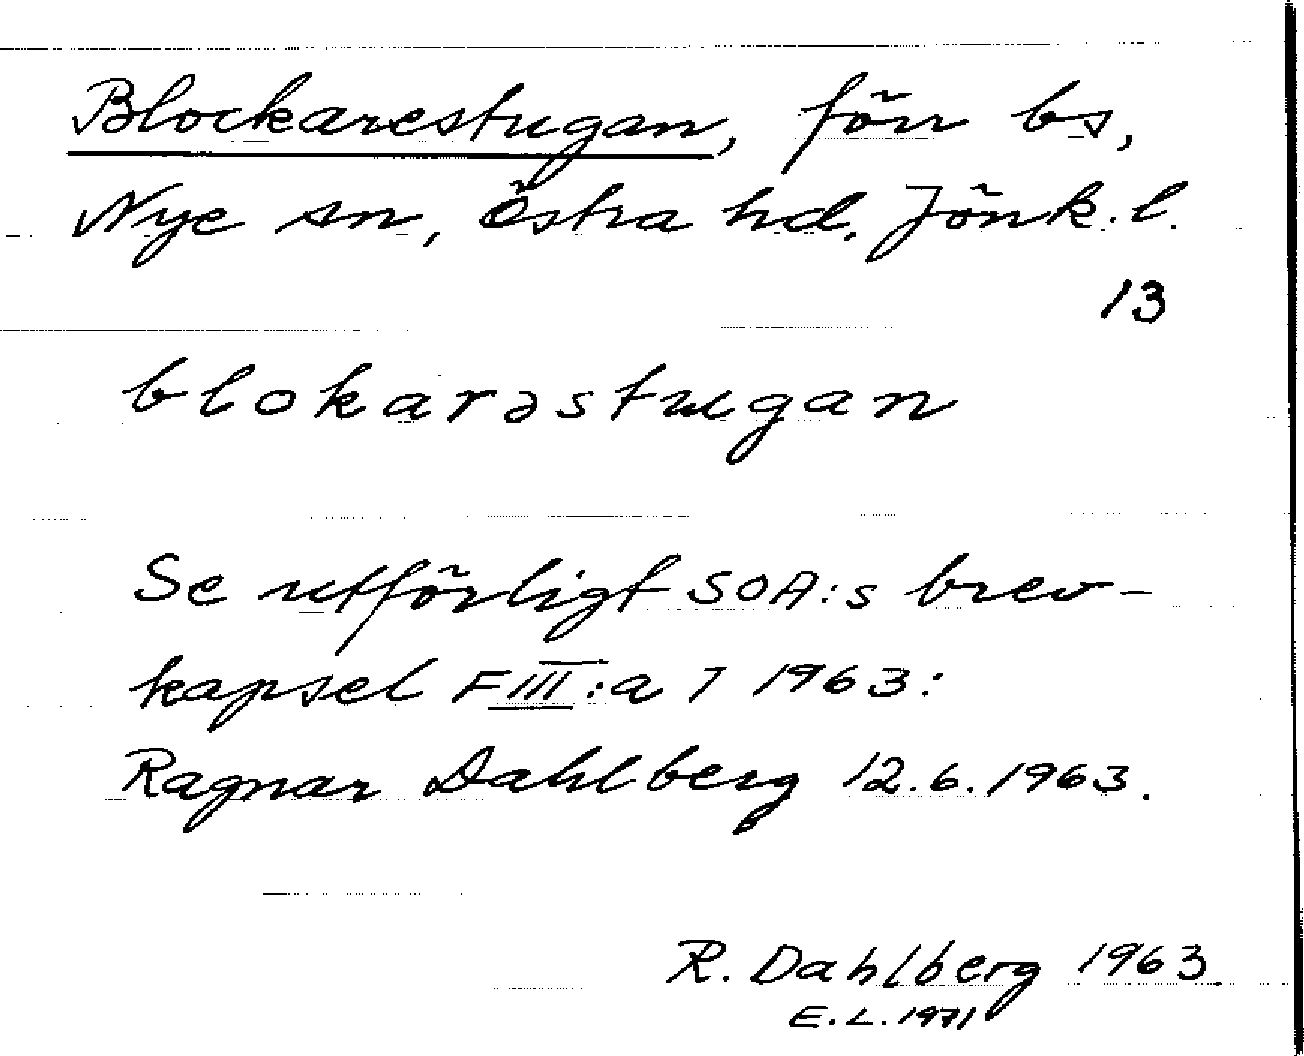 Blockarestugan, förr bs,
Nye sn, Östra hd, Jönk. l.
13
blokarəstugan
Se utförligt SOA:s brev-
kapsel F III:a 7 1963:
Ragnar Dahlberg 12.6.1963.
R. Dahlberg 1963.
E.L. 1971